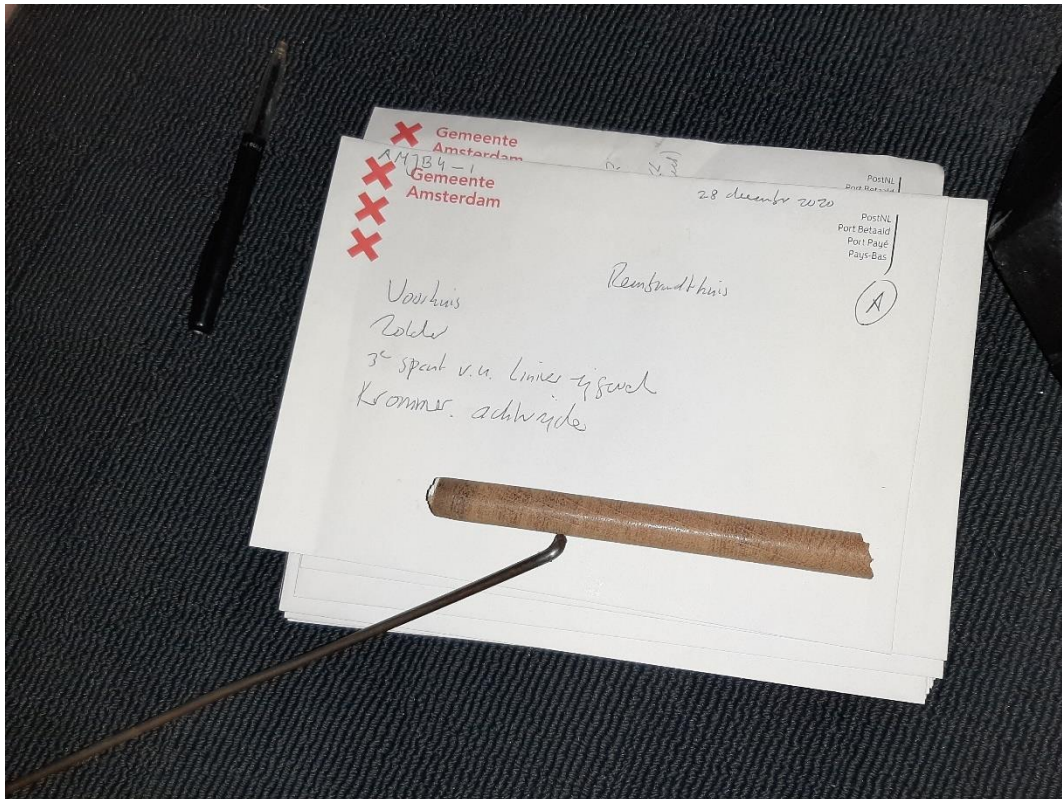 Gemeente
Amsterdam
PostNL
Port Betaald
AMJB4-1
Gemeente
Amsterdam
28 december 2020
PostNL
Port Betaald
Port Payé
Pays-Bas
Rembrandthuis
A
Voorhuis
Zolder
3e spant v.u. linker zijgevel
Krommer. achterzijde